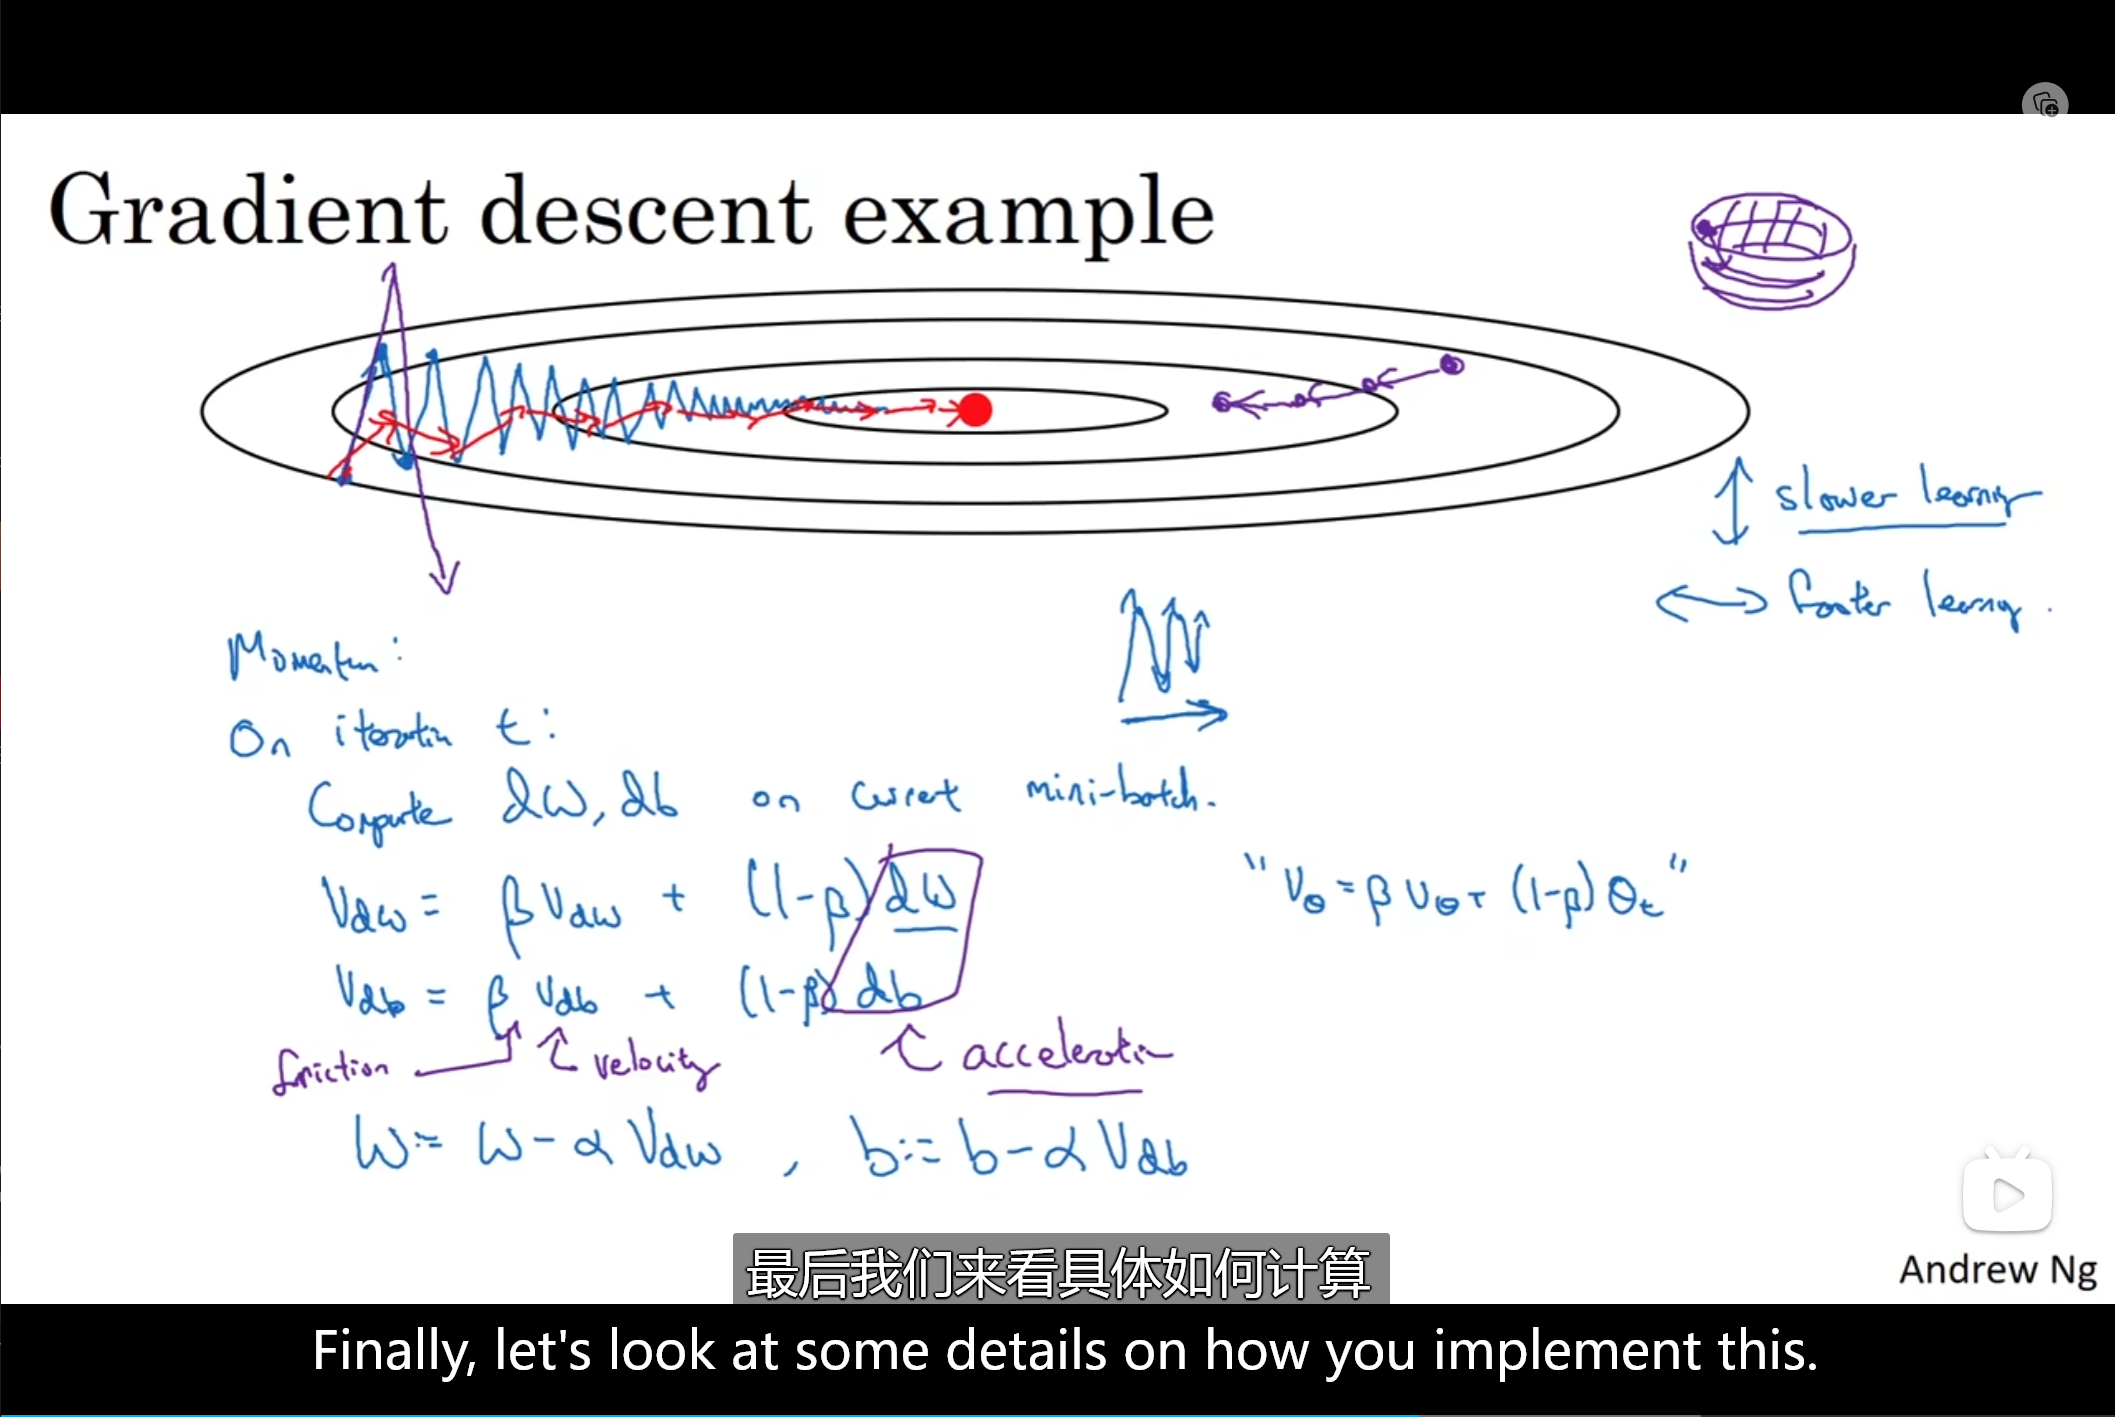 Gradient descent example
slower learning
faster learning.
Momentum:
On iteration t:
Compute dW, db on current mini-batch.
Vdw = β Vdw + (1-β) dW
"Vθ = β Vθ + (1-β) θt"
Vdb = β Vdb + (1-β) db
friction velocity acceleration
W := W - α Vdw , b := b - α Vdb
Andrew Ng
最后我们来看具体如何计算
Finally, let's look at some details on how you implement this.